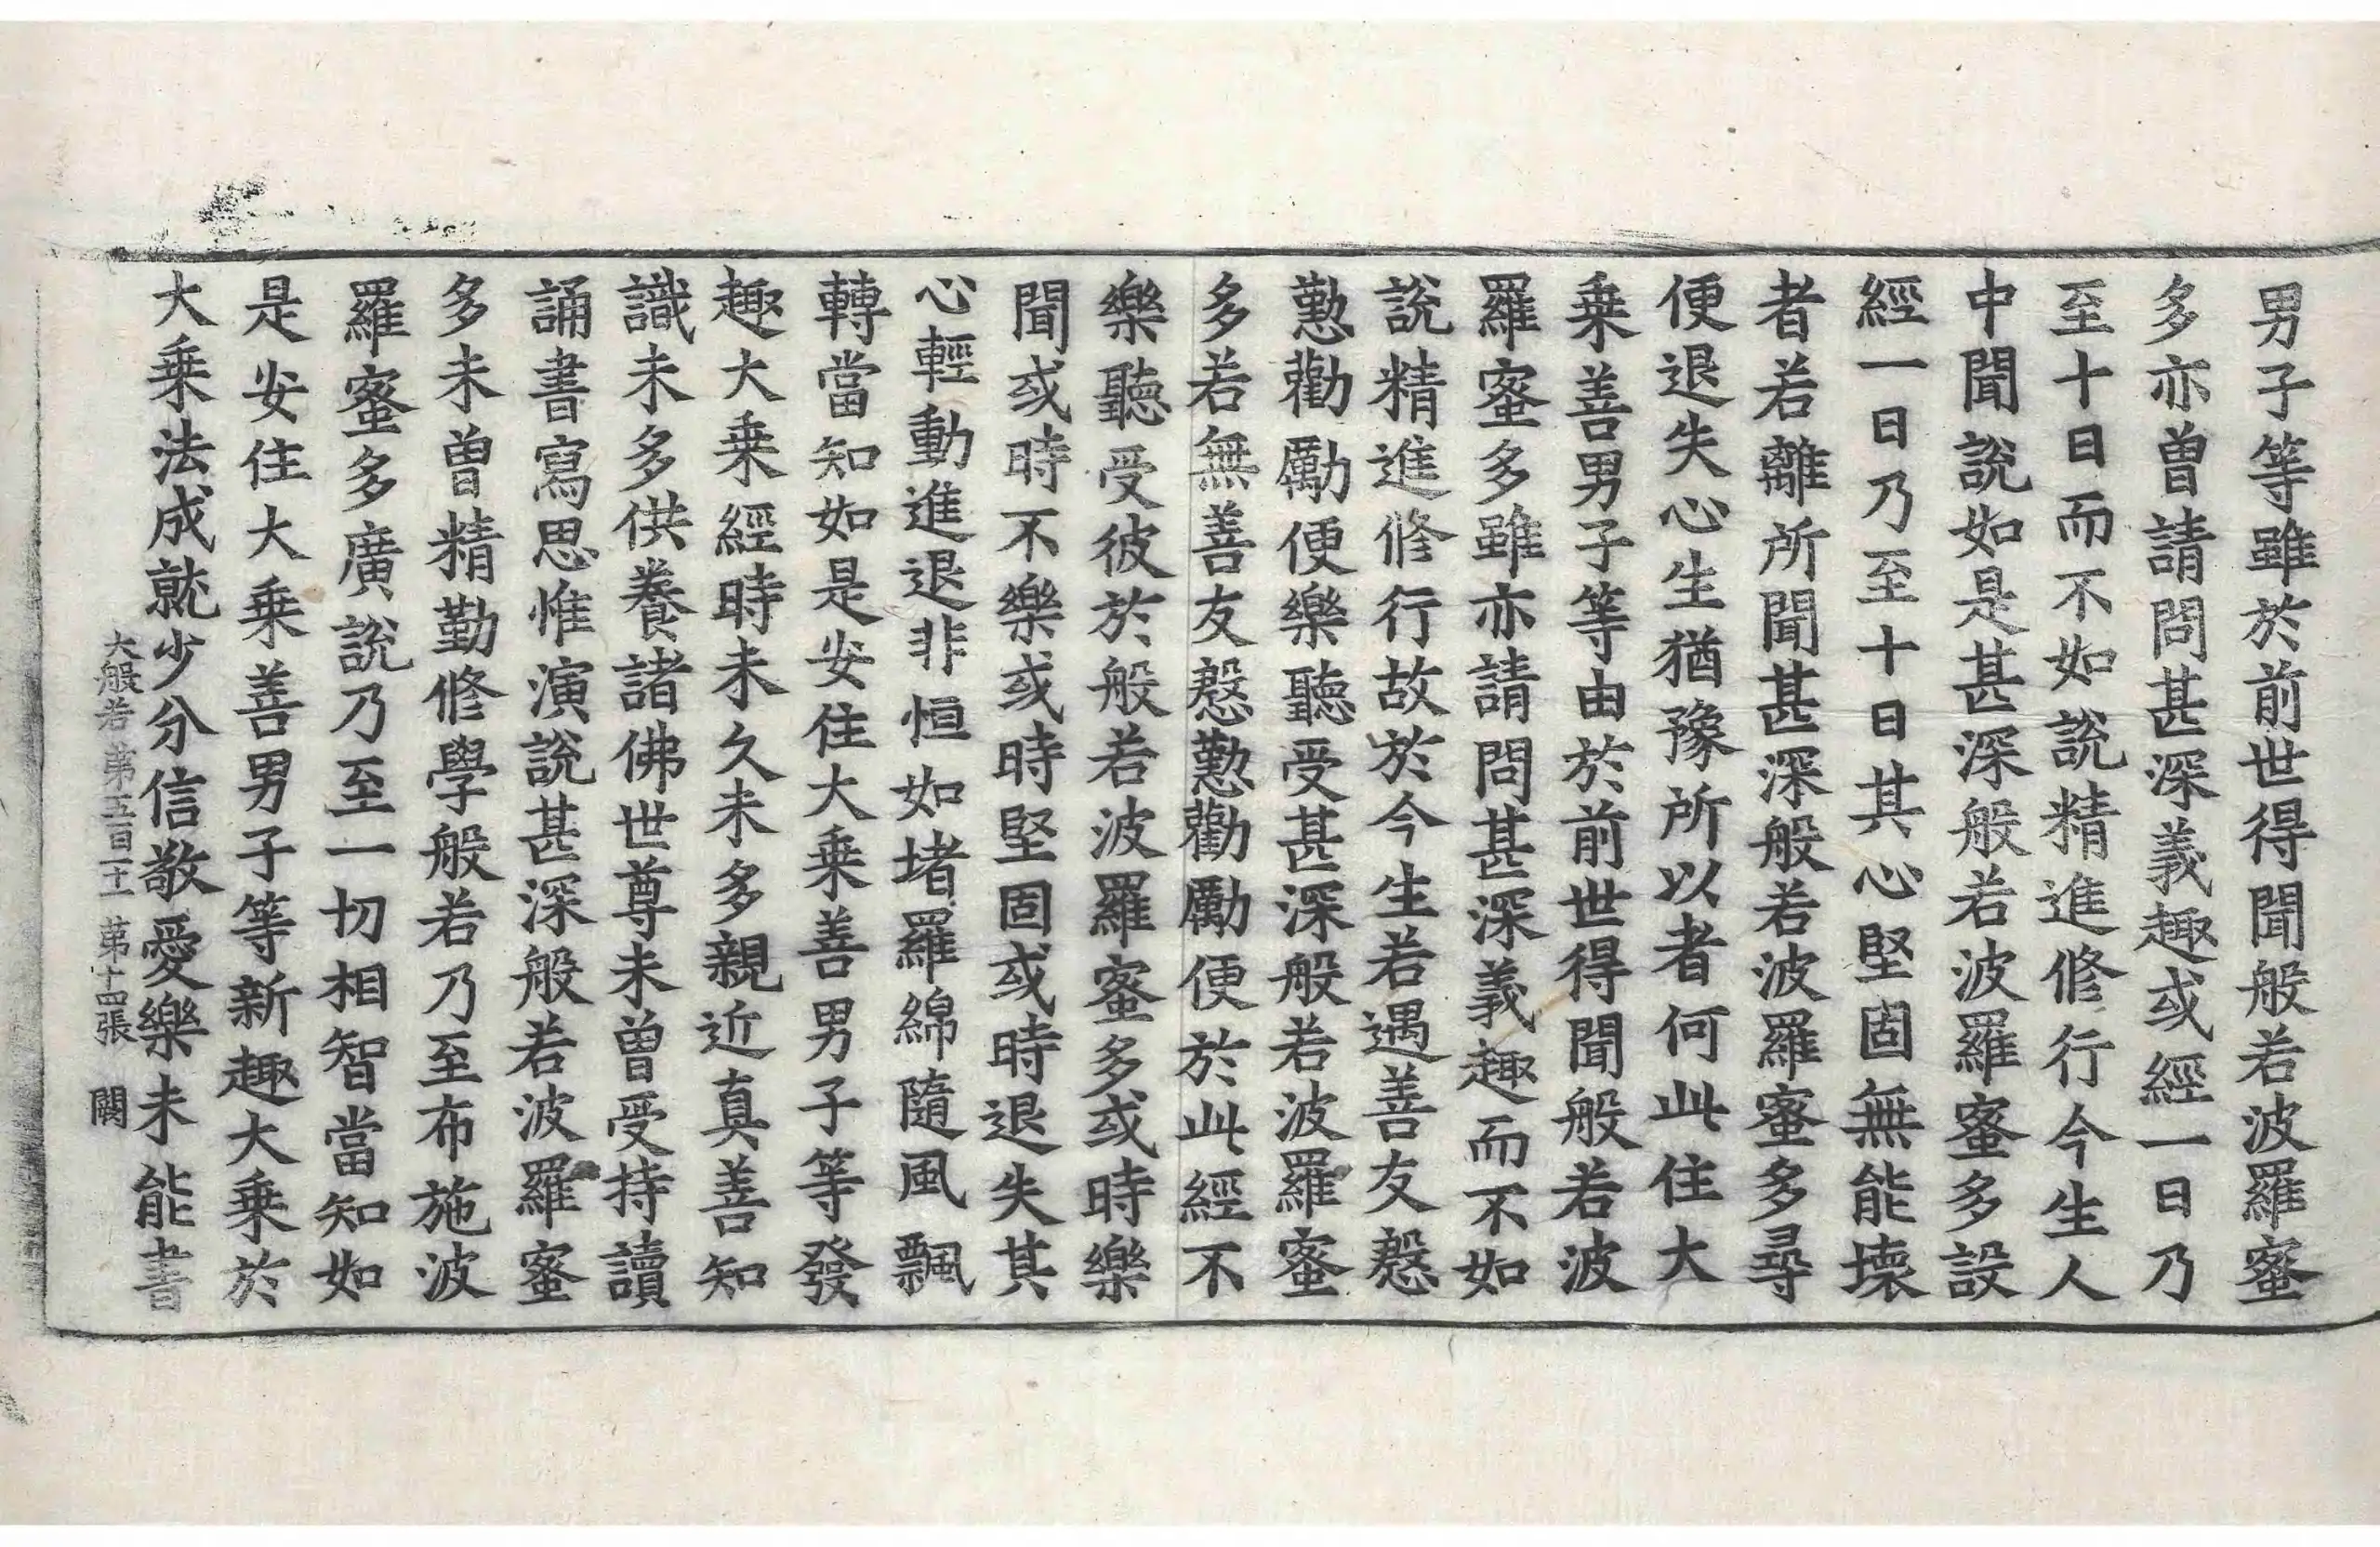 男子等雖於前世得聞般若波羅蜜
多亦曾請問甚深義趣或經一日乃
至十日而不如說精進修行今生人
中聞說如是甚深般若波羅蜜多設
經一日乃至十日其心堅固無能壞
者若離所聞甚深般若波羅蜜多尋
便退失心生猶豫所以者何此住大
乘善男子等由於前世得聞般若波
羅蜜多雖亦請問甚深義趣而不如
說精進修行故於今生若遇善友慇
懃勸勵便樂聽受甚深般若波羅蜜
多若無善友慇懃勸勵便於此經不
樂聽受彼於般若波羅蜜多或時樂
聞或時不樂或時堅固或時退失其
心輕動進退非恒如堵羅綿隨風飄
轉當知如是安住大乘善男子等發
趣大乘經時未久未多親近真善知
識未多供養諸佛世尊未曾受持讀
誦書寫思惟演說甚深般若波羅蜜
多未曾精勤修學般若乃至布施波
羅蜜多廣說乃至一切相智當知如
是安住大乘善男子等新趣大乘於
大乘法成就少分信敬愛樂未能書
大般若 第五百十一 第十四張 闕